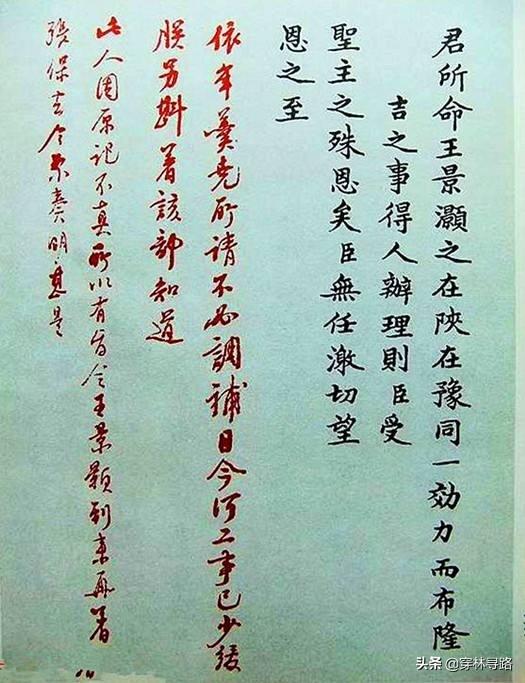 君所命王景灝之在陝在豫同一効力而布隆
吉之事得人辦理則臣受
聖主之殊恩矣臣無任激切望
恩之至
依年羹堯所請不必調補目今河工事已少緩
朕另斟著該部知道
此人因原記不真所以有旨令王景顥到來再著
張保去今看奏明甚是
头条 @穿林寻路